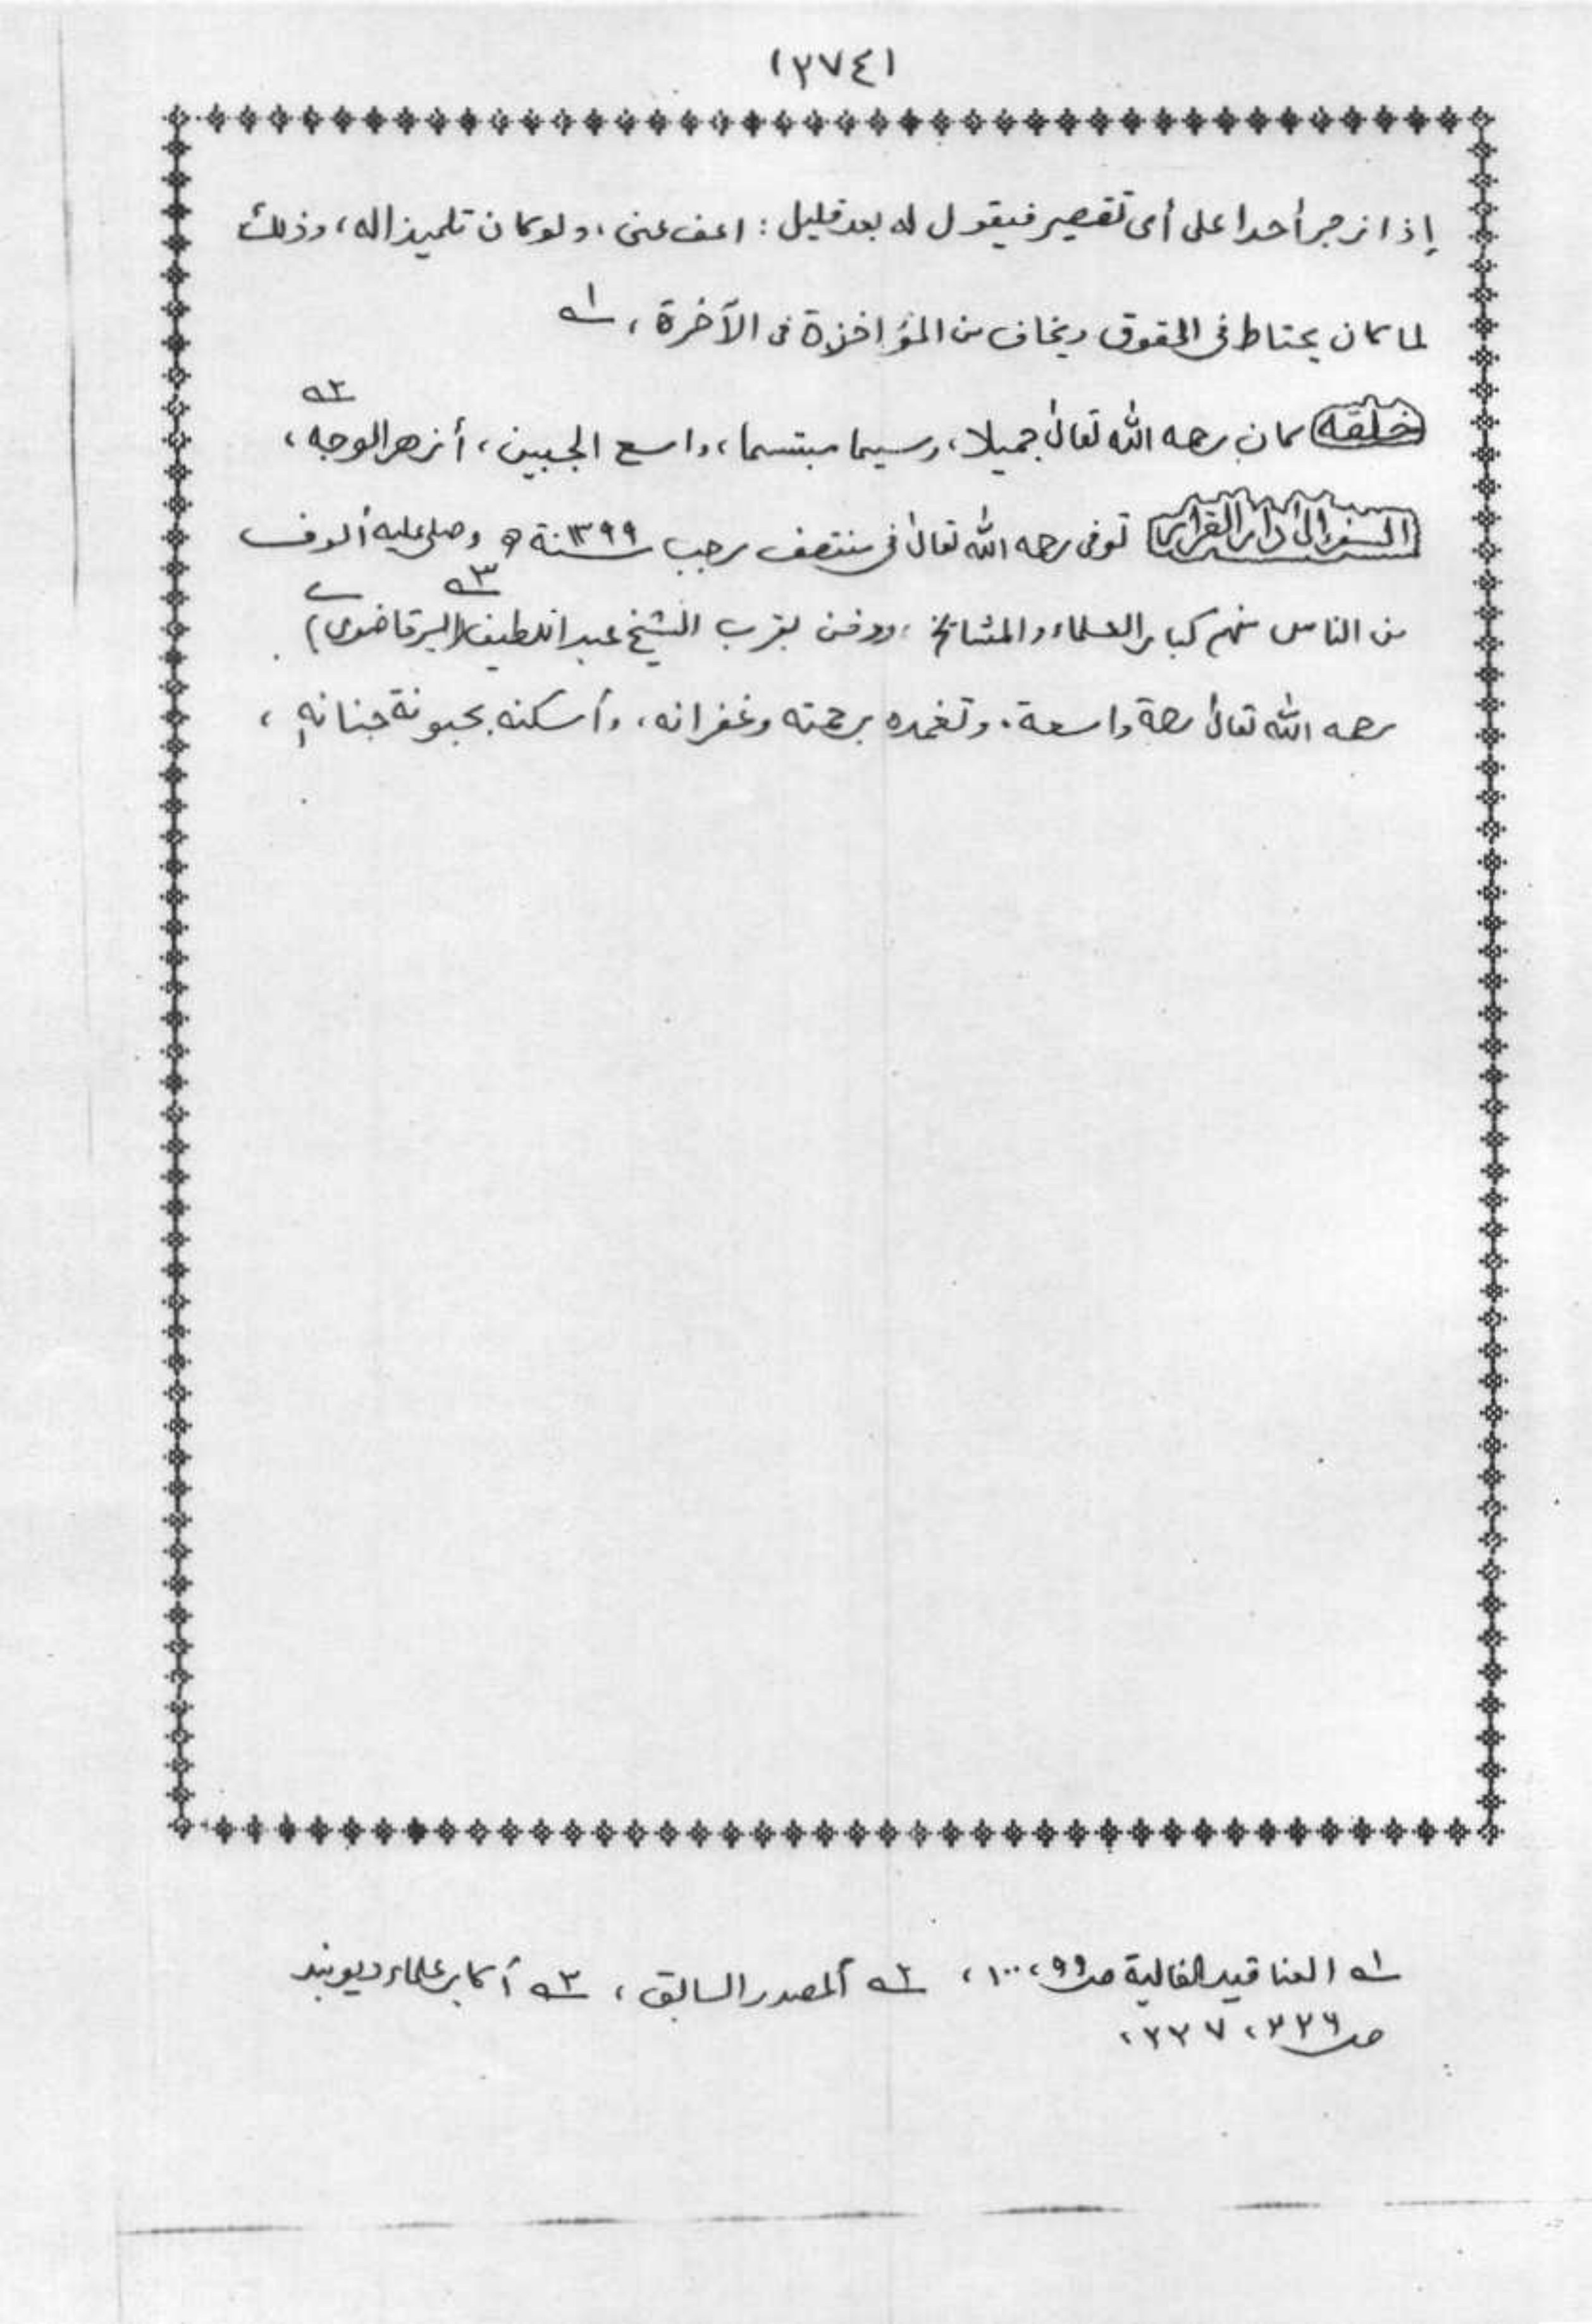 (٣٧٤)
إذا زجر أحدا على أى تقصير فيقول له بعد قليل : اعف عنى ، ولو كان تلميذا له ، وذلك
لما كان يحتاط فى الحقوق ويخاف من المؤاخذة فى الآخرة ، ١ه
خلقه كان رحمه الله تعالى جميلا ، وسيما مبتسما ، واسع الجبين ، أزهر الوجه ، ٢ه
السفر إلى دار القرار توفى رحمه الله تعالى فى منتصف رجب سنة ١٣٩٩ ه وصلى عليه ألوف
من الناس منهم كبار العلماء والمشائخ ، ودفن بقرب الشيخ عبد اللطيف (البرقاضوى) ٣ه
رحمه الله تعالى رحمة واسعة . وتغمده برحمته وغفرانه ، وأسكنه بحبوحة جنانه ،
١ه العناقيد الغالية ص ٩٩ ، ١٠٠ ، ٢ه المصدر السابق ، ٣ه أكابر علماء ديوبند
ص ٣٣٦ ، ٣٣٧ ،